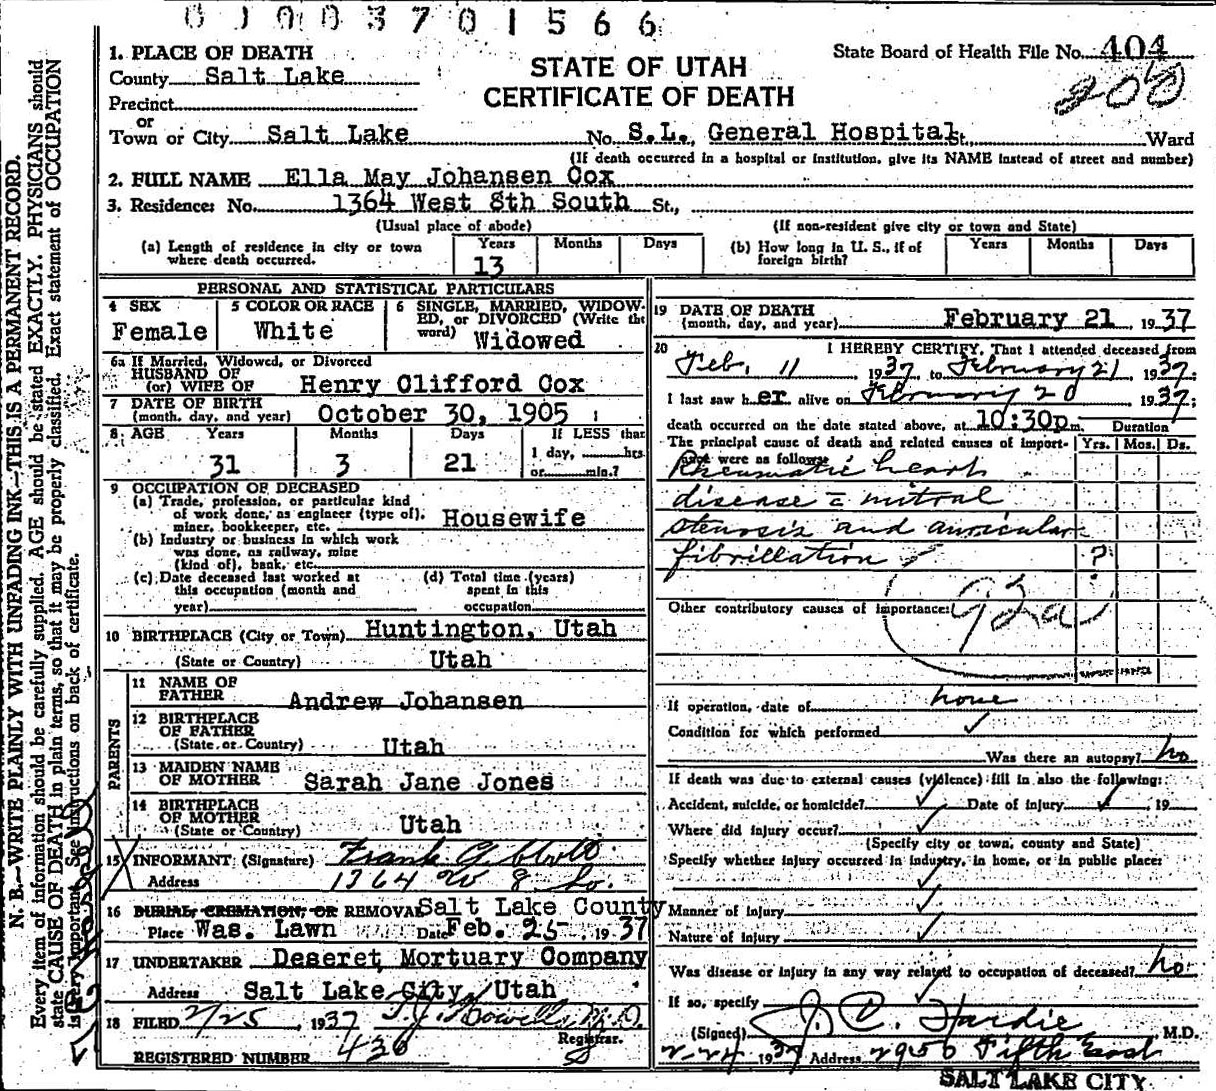 0 J 0 0 3 7 0 1 5 6 6
1. PLACE OF DEATH
County Salt Lake
Precinct
or
Town or City Salt Lake No. S.L. General Hospital St. Ward
(If death occurred in a hospital or institution, give its NAME instead of street and number)
STATE OF UTAH
CERTIFICATE OF DEATH
State Board of Health File No. 404
200
2. FULL NAME Ella May Johansen Cox
3. Residence: No. 1364 West 8th South St.,
(Usual place of abode) (If non-resident give city or town and State)
(a) Length of residence in city or town where death occurred. Years 13 Months Days
(b) How long in U. S., if of foreign birth? Years Months Days
PERSONAL AND STATISTICAL PARTICULARS
4 SEX Female
5 COLOR OR RACE White
6 SINGLE, MARRIED, WIDOWED, or DIVORCED (Write the word) Widowed
6a If Married, Widowed, or Divorced
HUSBAND OF
(or) WIFE OF Henry Clifford Cox
7 DATE OF BIRTH
(month, day, and year) October 30, 1905
8 AGE Years Months Days If LESS than
31 3 21 1 day, hrs
or min.?
9 OCCUPATION OF DECEASED
(a) Trade, profession, or particular kind
of work done, as engineer (type of),
miner, bookkeeper, etc. Housewife
(b) Industry or business in which work
was done, as railway, mine
(kind of), bank, etc.
(c) Date deceased last worked at
this occupation (month and
year)
(d) Total time (years)
spent in this
occupation
10 BIRTHPLACE (City or Town) Huntington, Utah
(State or Country) Utah
PARENTS
11 NAME OF
FATHER Andrew Johansen
12 BIRTHPLACE
OF FATHER
(State or Country) Utah
13 MAIDEN NAME
OF MOTHER Sarah Jane Jones
14 BIRTHPLACE
OF MOTHER
(State or Country) Utah
15 INFORMANT (Signature) Frank G
Address 1364 W 8 So.
16 BURIAL, CREMATION, OR REMOVAL Salt Lake County
Place Was. Lawn Date Feb. 25 1937
17 UNDERTAKER Deseret Mortuary Company
Address Salt Lake City, Utah
18 FILED 2/25, 1937 T.J. Howells M.D.
Registrar.
REGISTERED NUMBER 436
19 DATE OF DEATH
(month, day, and year) February 21, 1937
20 I HEREBY CERTIFY, That I attended deceased from
Feb. 11, 1937 to February 21, 1937.
I last saw her alive on February 20 1937;
death occurred on the date stated above, at 10:30p m. Duration
The principal cause of death and related causes of import- Yrs. Mos. Ds.
ance were as follows:
Rheumatic heart
disease c mitral
stenosis and auricular
fibrillation ?
Other contributory causes of importance:
92a
If operation, date of none
Condition for which performed
Was there an autopsy? no
If death was due to external causes (violence) fill in also the following:
Accident, suicide, or homicide? Date of injury , 19
Where did injury occur?
(Specify city or town, county and State)
Specify whether injury occurred in industry, in home, or in public place:
Manner of injury
Nature of injury
Was disease or injury in any way related to occupation of deceased? no
If so, specify
(Signed) J. C. Hardie M.D.
2-24 1937 Address 2950 Fifth East
SALT LAKE CITY
N. B.—WRITE PLAINLY WITH UNFADING INK—THIS IS A PERMANENT RECORD.
Every item of information should be carefully supplied. AGE should be stated EXACTLY. PHYSICIANS should
state CAUSE OF DEATH in plain terms, so that it may be properly classified. Exact statement of OCCUPATION
is very important. See instructions on back of certificate.